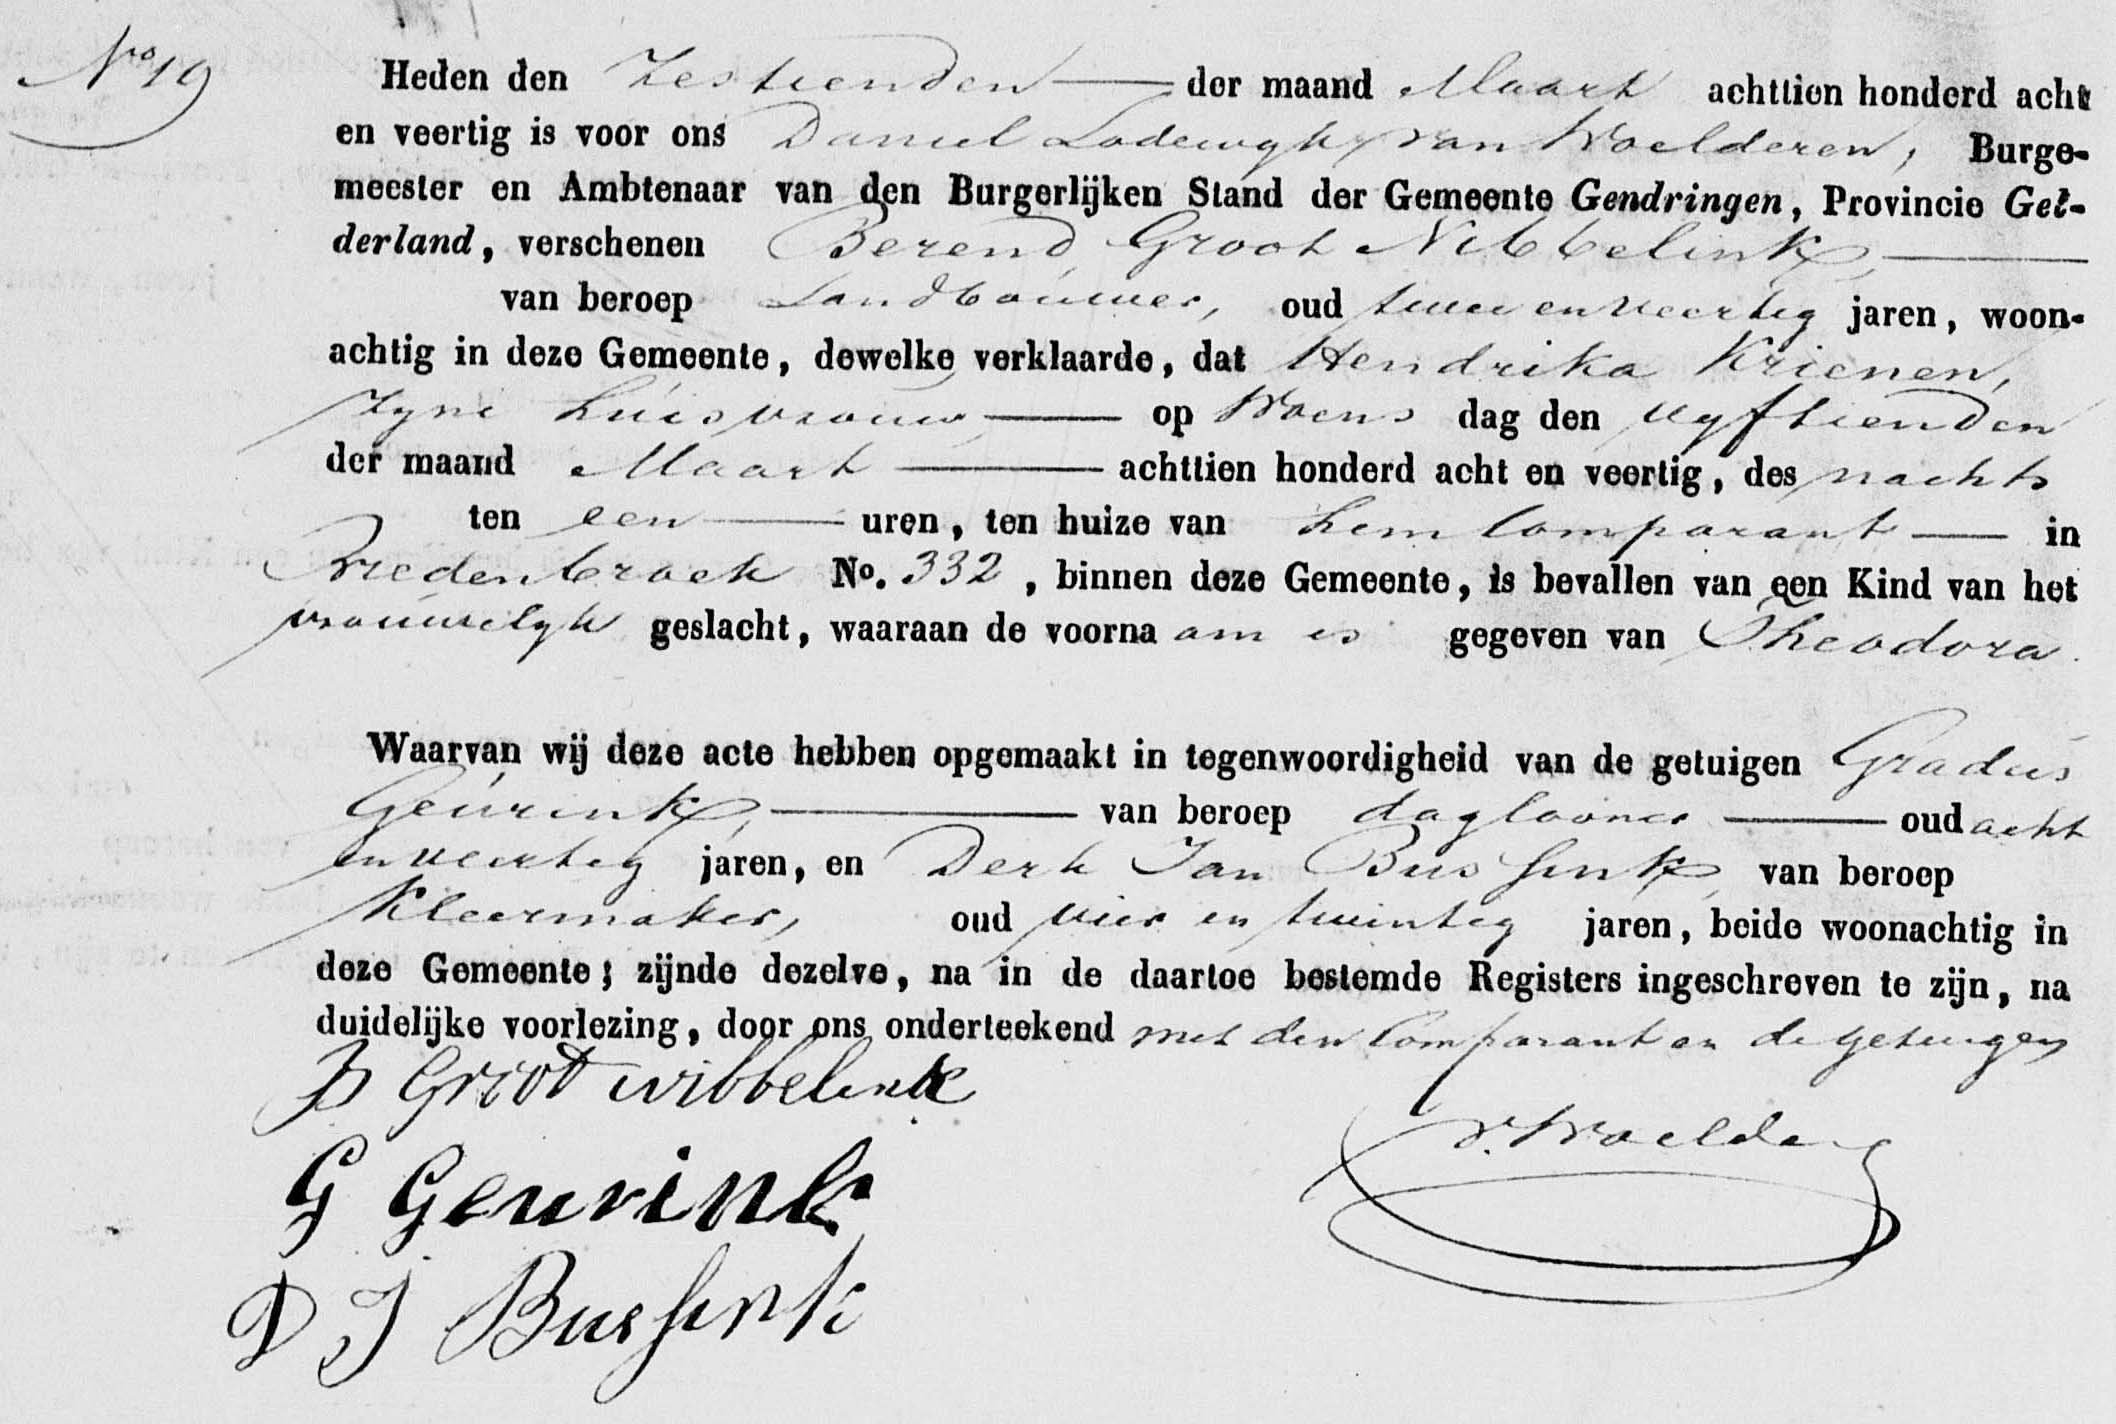 No 19
Heden den Zestienden der maand Maart achttien honderd acht
en veertig is voor ons Daniel Lodewyk van Woelderen, Burge-
meester en Ambtenaar van den Burgerlijken Stand der Gemeente Gendringen, Provincie Gel-
derland, verschenen Berend Groot Nibbelink,
van beroep Landbouwer, oud twee en veertig jaren, woon-
achtig in deze Gemeente, dewelke verklaarde, dat Hendrika Krienen,
zyne huisvrouw, op Woens dag den vyftienden
der maand Maart achttien honderd acht en veertig, des nachts
ten een uren, ten huize van hem Comparant in
No. 332, binnen deze Gemeente, is bevallen van een Kind van het
vrouwelyk geslacht, waaraan de voorna am is gegeven van Theodora.
Waarvan wij deze acte hebben opgemaakt in tegenwoordigheid van de getuigen Gradus
Geurink, van beroep daglooner oud acht
en veertig jaren, en Derk Jan Bussink, van beroep
Kleermaker, oud vier en twintig jaren, beide woonachtig in
deze Gemeente; zijnde dezelve, na in de daartoe bestemde Registers ingeschreven te zijn, na
duidelijke voorlezing, door ons onderteekend met den Comparant en de getuigen
B Groot Nibbelink
G Geurink
v. Woelderen
D J Bussink